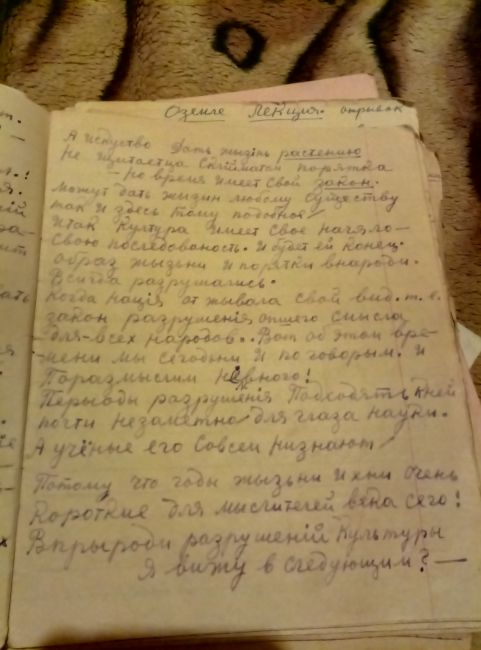 О земле Лекция. отрывок
А Искуство Дать жизнь растению
не щитаетца с порятка
- но время имеет свой закон.
Можут дать жизни любому Существу
так и здесь тому подобное
Итак Култура имеет свое начяло-
Свою последованость. И будет ей конец.
образ жызьни и порятки внароди.
Всигда разрушались.
Когда Нація от жывала свой вид. т. е.
закон разрушенія опщего смысла
- для - всех народов. Вот об этом вре-
мени мы сегодьни и поговорым. и
Поразмыслим немного!
Перыоды разрушенія Подходять к ней
почти незаметно для глаза науки.
А учёные его Совсем низнают
Потому что годы жызьни и хни очень
Короткие для мыслителей века сего!
Впрыроди разрушеній Култьуры
Я вижу в следующим? —